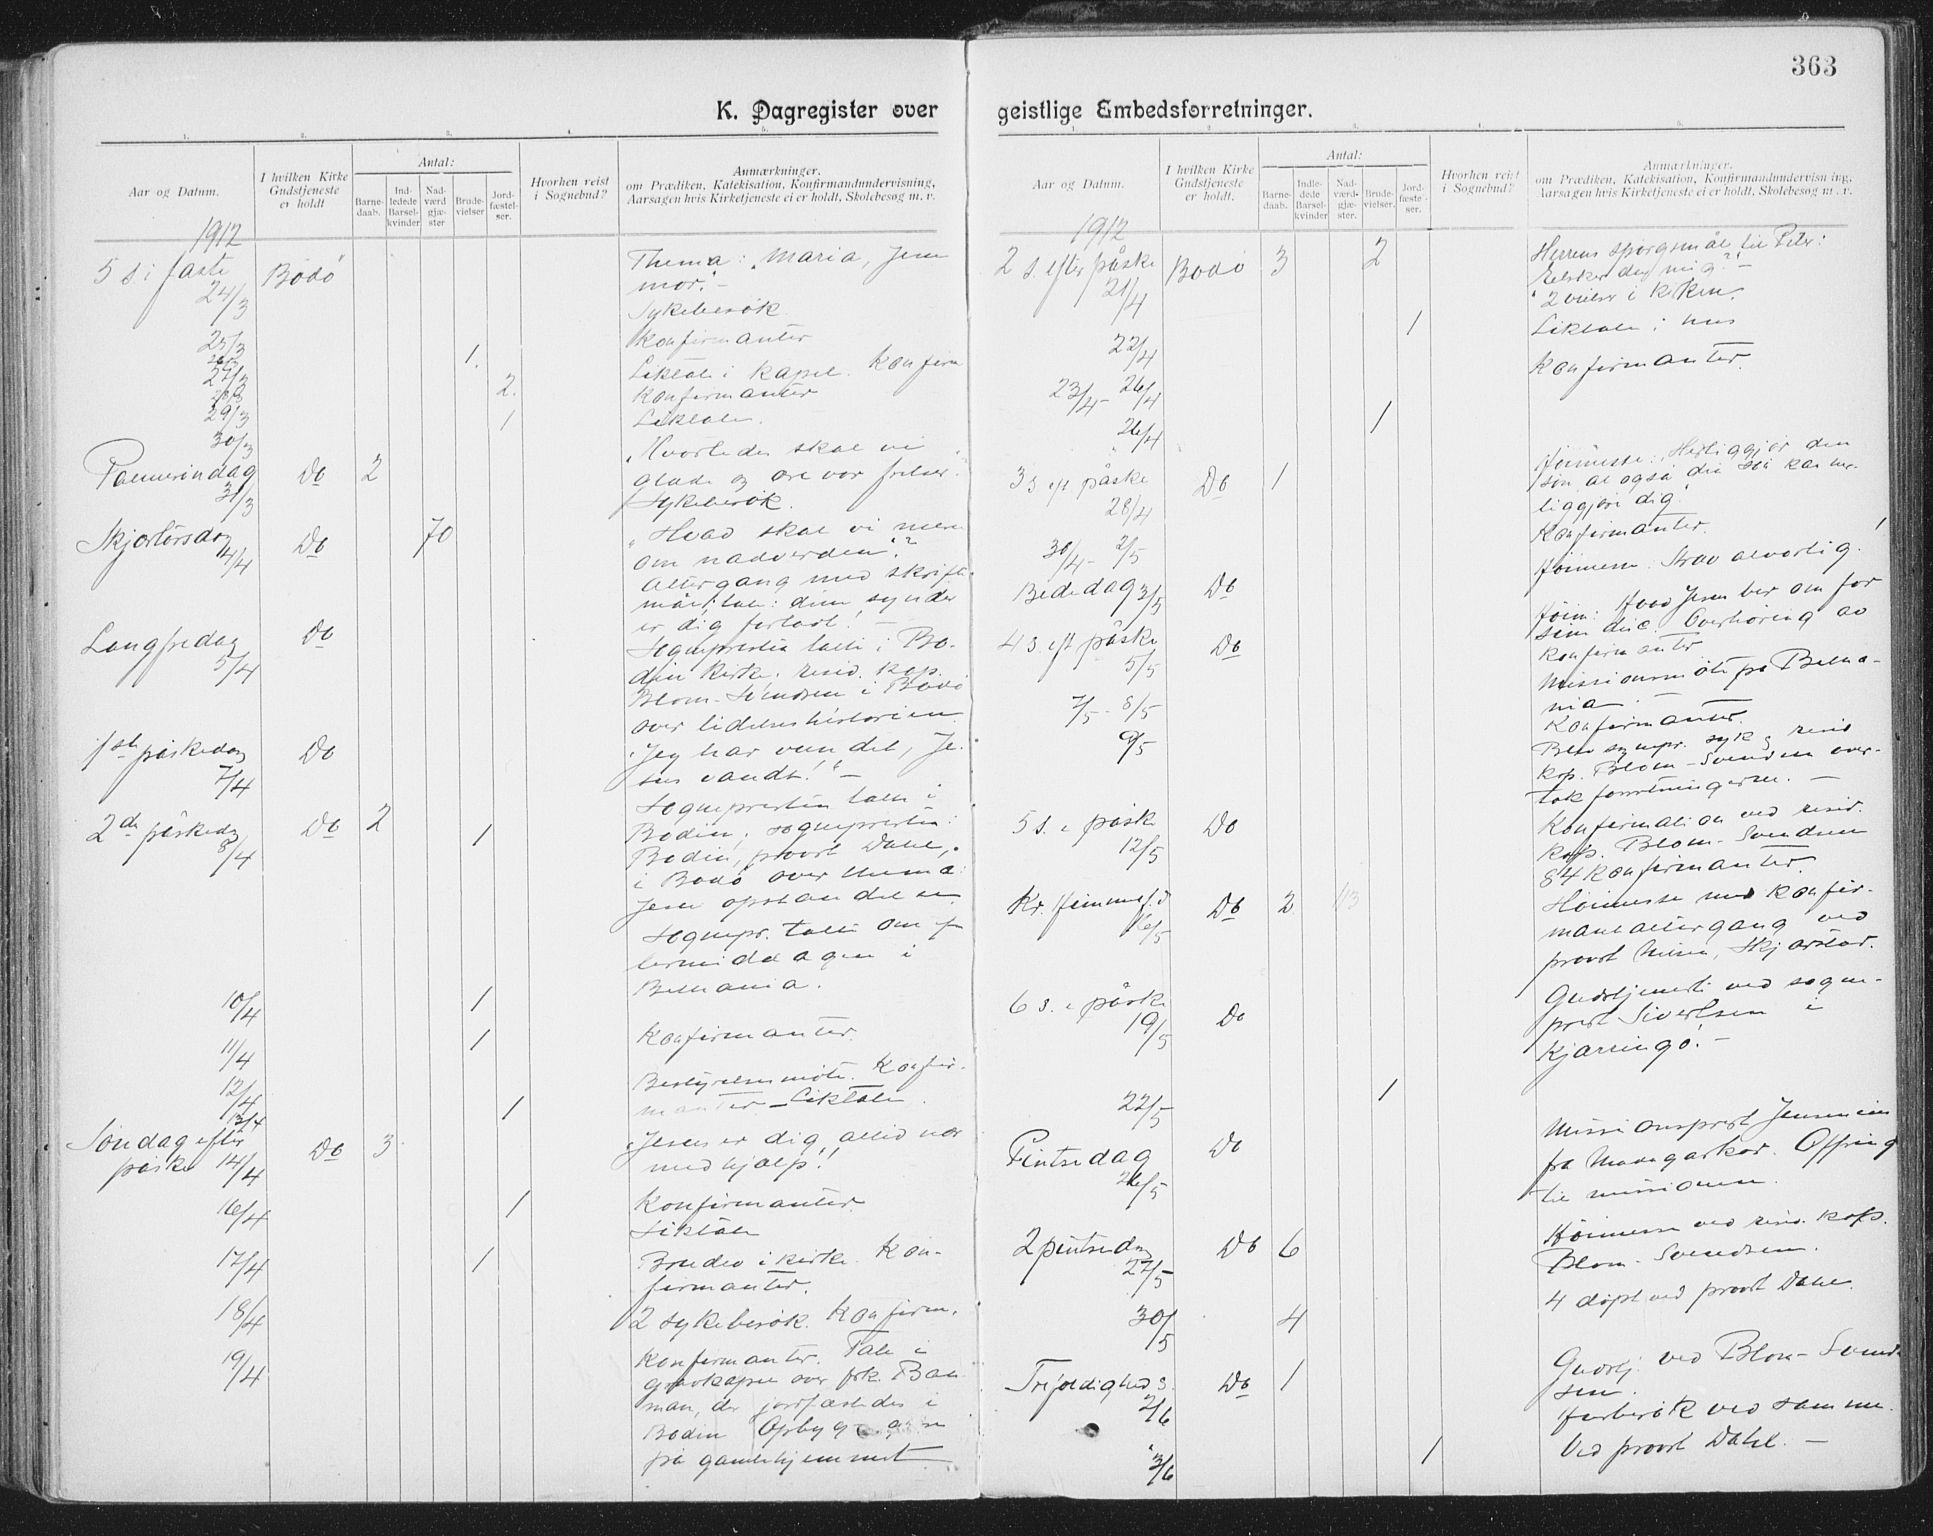 363
K. Dagregister over geistlige Embedsforretninger.
1. 2. 3. 4. 5.
Aar og Datum.
I hvilken Kirke Gudstjeneste er holdt
Antal:
Barne-daab.
Ind-ledede Barsel-kvinder
Nad-værd gjæ-ster
Brude-vielser
Jord-fæstel-ser.
Hvorhen reist i Sognebud?
Anmærkninger.
om Prædiken, Katekisation, Konfirmandundervisning,
Aarsagen hvis Kirketjeneste ei er holdt, Skolebesøg m. v.
1912
5 s. i faste Bodø Thema: "Maria, Jesu
24/3 mor." -
Sykebesøk
25/3 Konfirmanter
26/3 1.
27/3 Liktale i kapel. Konfirm
28/3 2. Konfirmanter
29/3 1 Liktale.
30/3
Palmesøndag Do 2 "Hvorledes skal vi
31/3 glæde og ære vor frelser?"
Sykebesøk.
Skjærtorsdag Do 70 "Hvad skal vi mene
4/4 om nadverden"?
Altergang med skrifte-
mål; tale: dine synder
er dig forladt! -
Langfredag Do Sognepresten talte i Bo-
5/4 din kirke, resid. kap.
Blom-Svendsen i Bodø
over lidelseshistorien.
1ste påskedag Do "Jeg har vundet, Je-
7/4 sus vandt!" -
Sognepresten talte i
2den påskedag Do 2 1 Bodin; sognepresten i
8/4 Bodin, provst Dahl,
i Bodø over thema:
Jesu opstandelse.
Sognepr. talte om ef-
termiddagen i
Betania.
10/4 1
11/4 1 Konfirmanter.
12/4 Bestyrelsesmøte. Konfir-
13/4 1 manter - Liktale.
Søndag efter Do 3 "Jesus er dig altid nær
påske 14/4 med hjælp!"
16/4 1 Konfirmanter.
Liktale
17/4 1 Brudev. i kirke. Kon-
firmanter.
18/4 2 sykebesøk. Konfirm.
19/4 Konfirmanter. Tale i
gravkapel over frk. Bau
man, der jordfæstedes i
Bodin
på gamlehjemmet
1. 2. 3. 4. 5.
Aar og Datum.
I hvilken Kirke Gudstjeneste er holdt.
Antal:
Barne-daab.
Indle-dede Barsel-kvinder
Nad-værd-gjæ-ster
Brude-vielser.
Jord-fæste-ser.
Hvorhen reist i Sognebud?
Anmærkninger.
om Prædiken, Katekisation, Konfirmandundervisning,
Aarsagen hvis Kirketjeneste ei er holdt, Skolebesøg m. v.
1912
2 s. efter påske Bodø 3 2 Herrens spørgsmål til Peter:
21/4 Elsker du mig?" -
2 vielser i kirken.
22/4 1 Liktale i hus
23/4 - 26/4 Konfirmanter.
26/4 1
3 s. eft. påske Do 1 Høimesse: Herliggjør den
28/4 søn, at også din søn kan her-
liggjøre dig!
30/4 - 2/5 Konfirmanter.
Bededag 3/5 Do Høimesse: Strax alvorlig!
4 s. eft påske Do Høim: Hvad Jesus ber om for
5/5 sine disc. Overhøring av
konfirmanter
Missionsmøte på Beta-
nia. -
7/5 - 8/5 Konfirmanter.
9/5 Blev sognepr. syk og resid
kap. Blom-Svendsen over-
tok forretningerne. -
5 s. e påske Do Konfirmation ved resid.
12/5 kap. Blom-Svendsen
84 konfirmanter.
Kr. himmelf.d Do 2 43 Høimesse med konfir-
16/5 mantaltergang ved
provst Nilsen, Skjærstad.
6 s. e påske Do Gudstjeneste ved sogne-
19/5 prest Sivertsen i
Kjærringø. -
22/5 1
Pintsedag Do Missionsprest Jensenius
26/5 fra Madagaskar. Offring
til missionen.
2 pintsedag Do 6 Høimesse ved resid. kap.
27/5 Blom-Svendsen.
30/5 4 4 døpt ved provst Dahl.
Trefoldigheds. Do 1 Gudstj. ved Blom-Svend-
2/6 sen.
Husbesøk ved samme.
3/6 1 Ved provst Dahl. -